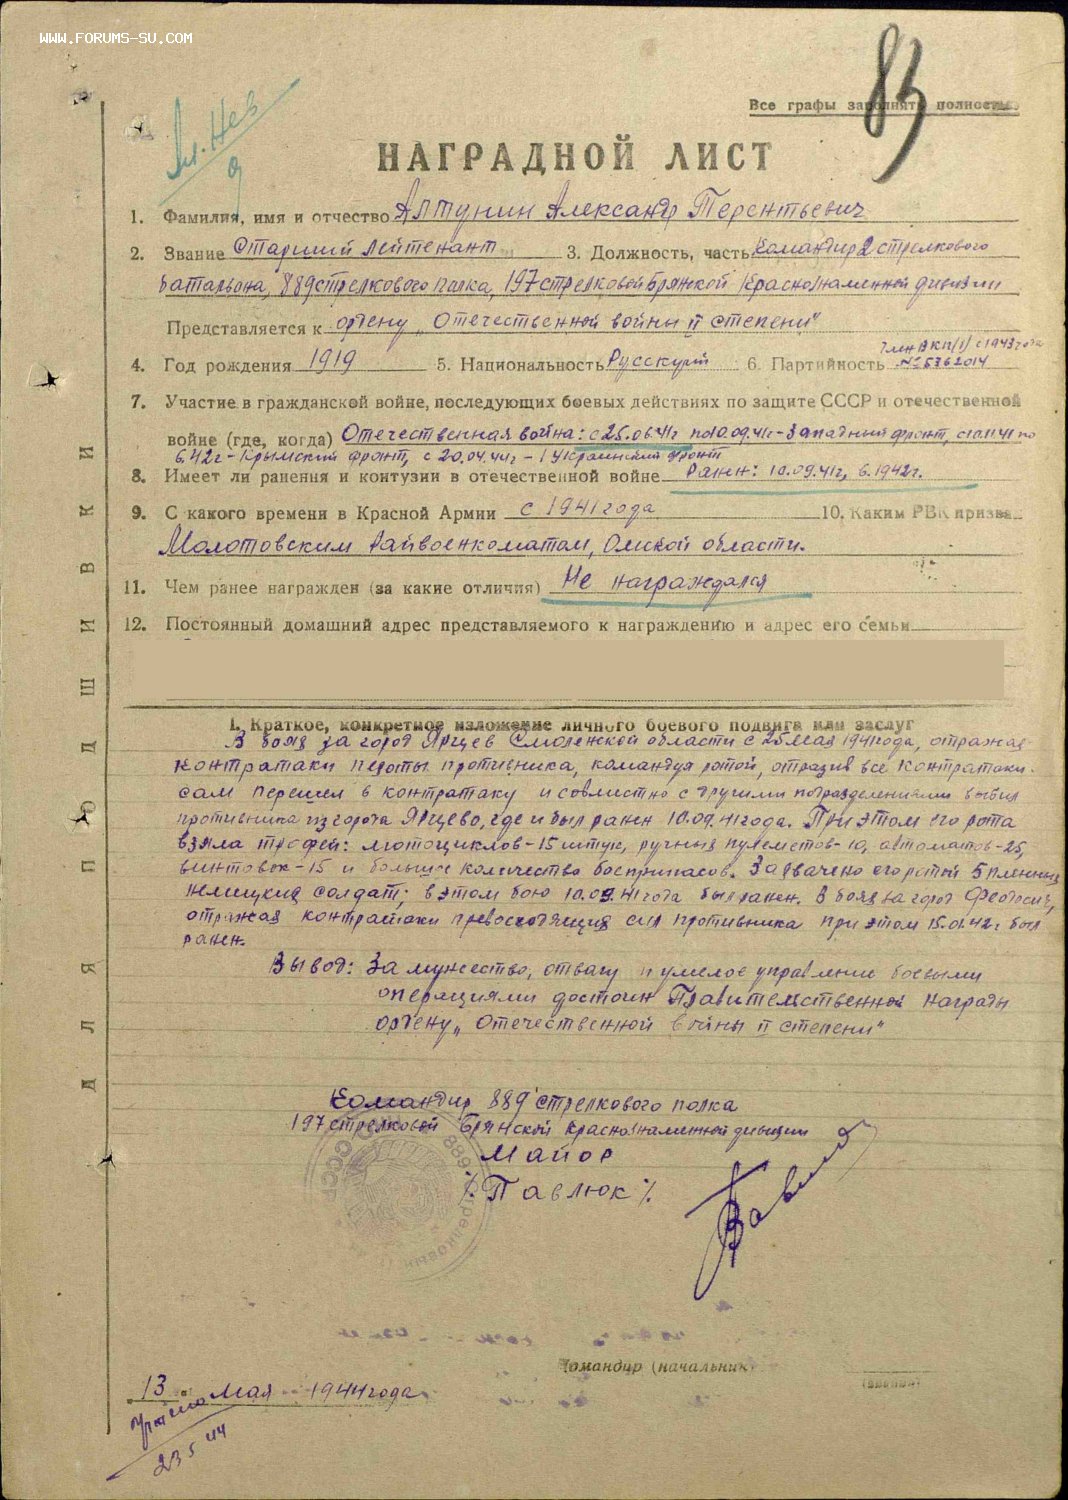 WWW.FORUMS-SU.COM
83
Все графы заполнять полностью.
Ал. Нев
НАГРАДНОЙ ЛИСТ
1. Фамилия, имя и отчество Алтунин Александр Терентьевич
2. Звание Старший лейтенант 3. Должность, часть Командир 2 стрелкового
батальона, 889 стрелкового полка, 197 стрелковой Брянской Краснознаменной дивизии
Представляется к ордену „Отечественной войны II степени"
член ВКП(б) с 1943 года
4. Год рождения 1919 5. Национальность Русский 6. Партийность № 5762014
7. Участие в гражданской войне, последующих боевых действиях по защите СССР и отечественной
войне (где, когда) Отечественная война: с 25.06.41г по 10.09.41г - Западный фронт, с 10.11.41 по
6.42г - Крымский фронт, с 20.04.44г - 1 Украинский фронт
8. Имеет ли ранения и контузии в отечественной войне Ранен: 10.09.41г, 6.1942г.
9. С какого времени в Красной Армии с 1941 года 10. Каким РВК призва
Молотовским райвоенкоматом, Омской области.
11. Чем ранее награжден (за какие отличия) Не награждался
12. Постоянный домашний адрес представляемого к награждению и адрес его семьи
I. Краткое, конкретное изложение личного боевого подвига или заслуг
В боях за город Ярцев Смоленской области с 25 мая 1941 года, отражая
контратаки пехоты противника, командуя ротой, отразив все контратаки.
сам перешел в контратаку и совместно с другими подразделениями выбил
противника из города Ярцево, где и был ранен 10.09.41 года. При этом его рота
взяла трофей: мотоциклов-15 штук, ручных пулеметов-10, автоматов-25,
винтовок-15 и больше количество боеприпасов. Захвачено его ротой 5 пленных
немецких солдат; в этом бою 10.09.41 года был ранен. В боях за город Феодосия,
отражая контратаки превосходящих сил противника при этом 15.01.42г был
ранен.
Вывод: За мужество, отвагу и умелое управление боевыми
операциями достоин Правительственной награды
ордену „Отечественной войны II степени"
Командир 889 стрелкового полка
197 стрелковой Брянской Краснознаменной дивизии
Майор
/Павлюк/.
Командир (начальник
13 мая 1944 года
23 5 44
ДЛЯ ПОДШИВКИ